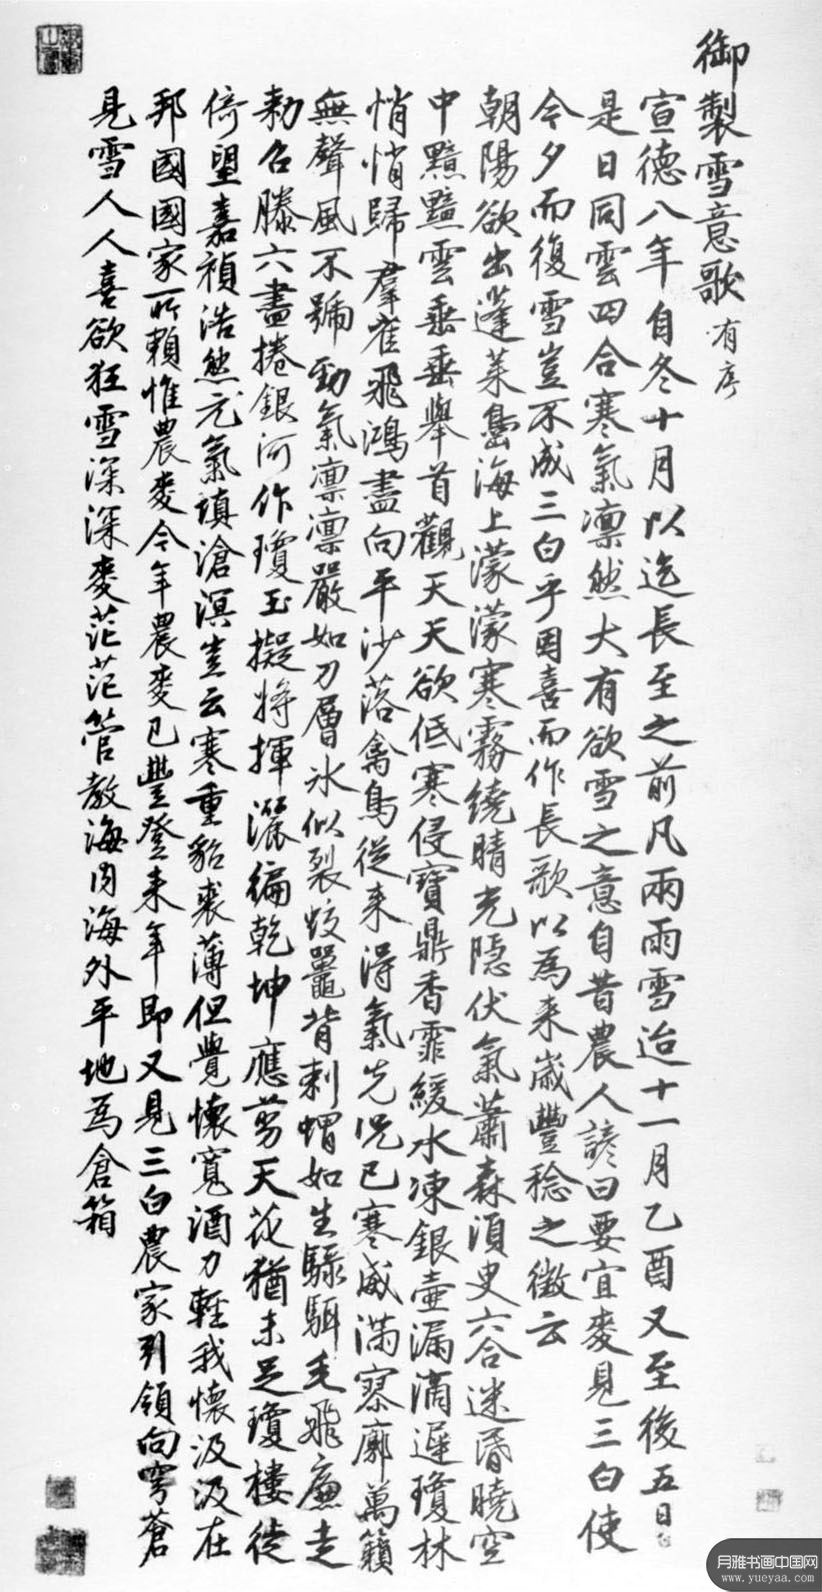 御製雪意歌 有序
宣德八年自冬十月以迄長至之前凡兩雨雪迨十一月乙酉又至後五日
是日同雲四合寒氣凛然大有欲雪之意自昔農人諺曰要宜麥見三白使
今夕而復雪豈不成三白乎因喜而作長歌以為来歲豐稔之徵云
朝陽欲出蓬萊島海上濛濛寒霧繞晴光隱伏氣蕭森須臾六合迷昏曉空
中黯黯雲垂垂舉首觀天天欲低寒侵寶鼎香霏緩水凍銀壺漏滴遲瓊林
悄悄歸羣雀飛鴻盡向平沙落禽鳥從来得氣先況已寒威滿寥廓萬籟
無聲風不號勁氣凛凛嚴如刀層氷似裂蛟鼉背刺蝟如生騄駬毛飛廉走
勑召滕六盡捲銀河作瓊玉擬將揮灑徧乾坤應剪天花猶未足瓊樓徙
倚望嘉禎浩然元氣填滄溟豈云寒重貂裘薄但覺懷寬酒力輕我懷汲汲在
邦國國家所賴惟農麥今年農麥已豐登来年即又見三白農家引領向穹蒼
見雪人人喜欲狂雪深深麥茫茫管教海内海外平地為倉箱
月雅书画中国网
www.yueyaa.com